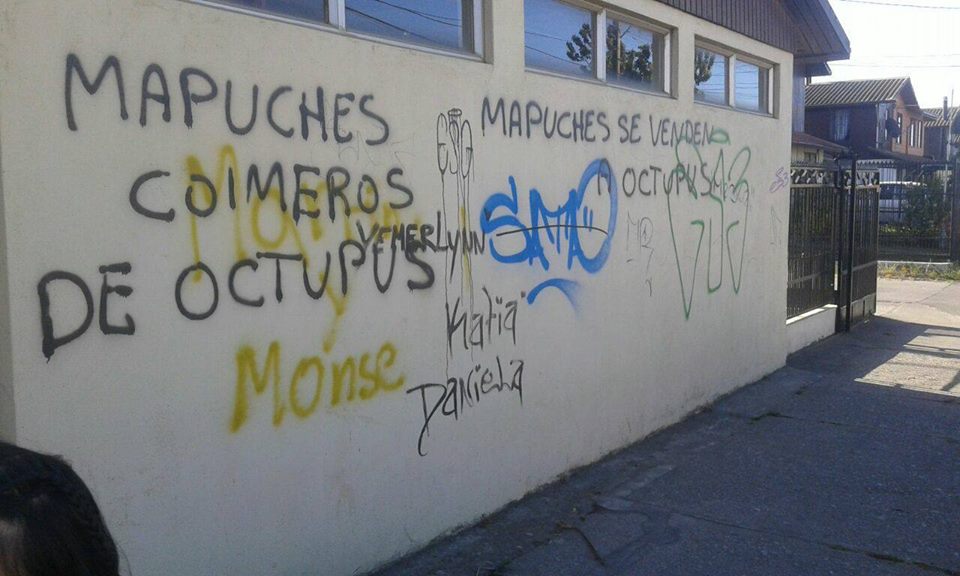 MAPUCHES
COIMEROS
DE OCTUPUS
MAPUCHES SE VENDEN
A OCTUPUS
YEMERLYNN
Y
Monse
Katia
Daniela